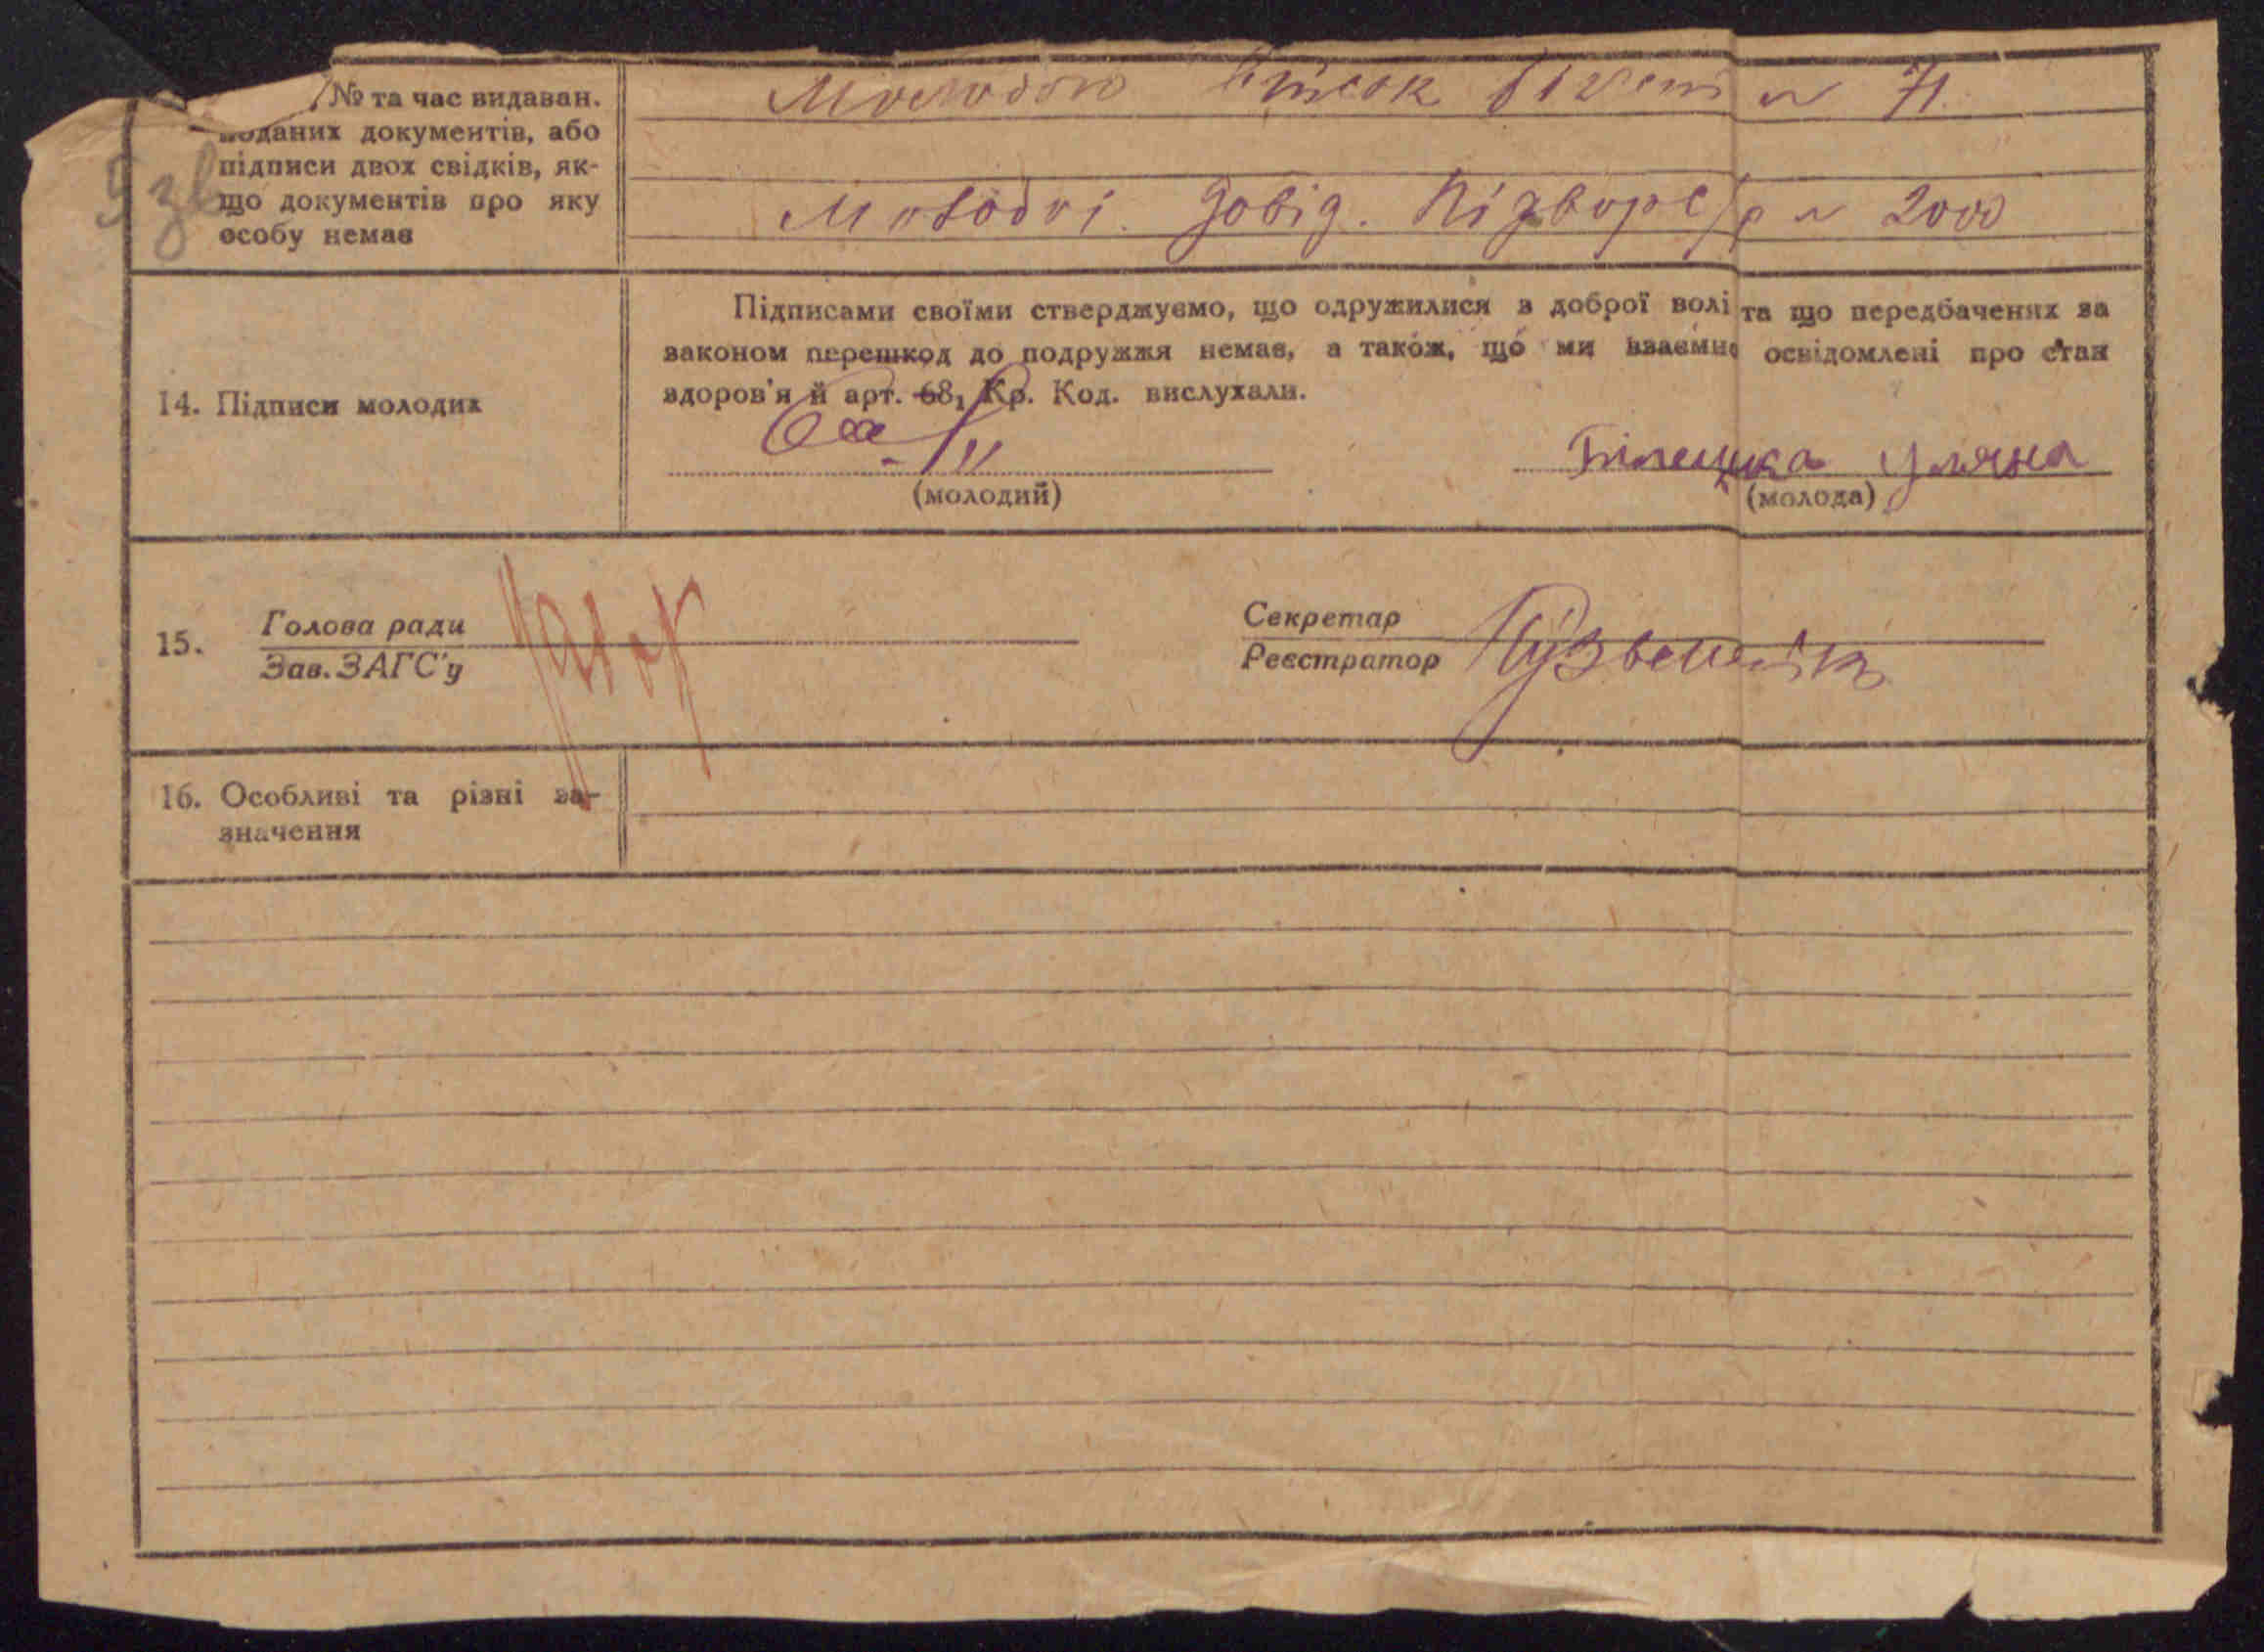 № та час видаван.
поданих документів, або
підписи двох свідків, як-
що документів про яку
особу немає
Молодого Війск білет № 71
Молодої. Довід. № 2000
14. Підписи молодих
Підписами своїми стверджуємо, що одружилися з доброї волі та що передбачених за
законом перешкод до подружжя немає, а також, що ми взаємно освідомлені про стан
здоров'я й арт. 68₁ Кр. Код. вислухали.
Білецька Уляна
(молодий) (молода)
15. Голова ради
Зав. ЗАГС'у
Секретар
Реєстратор
16. Особливі та різні за-
значення